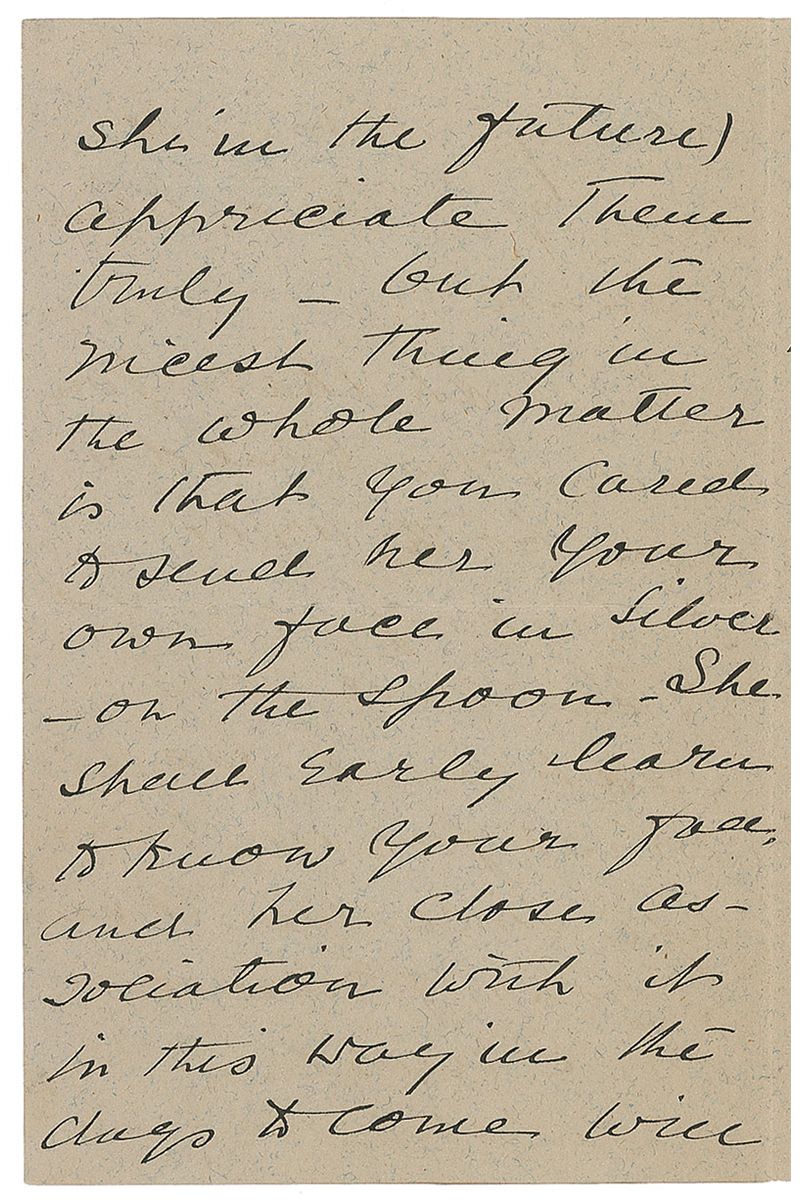 she in the future)
appriciate them
truly – but the
nicest thing in
the whole matter
is that you cared
to send her your
own face in silver
– on the spoon – She
shall early learn
to know your face,
and her close as-
sociation with it
in this way in the
days to come will